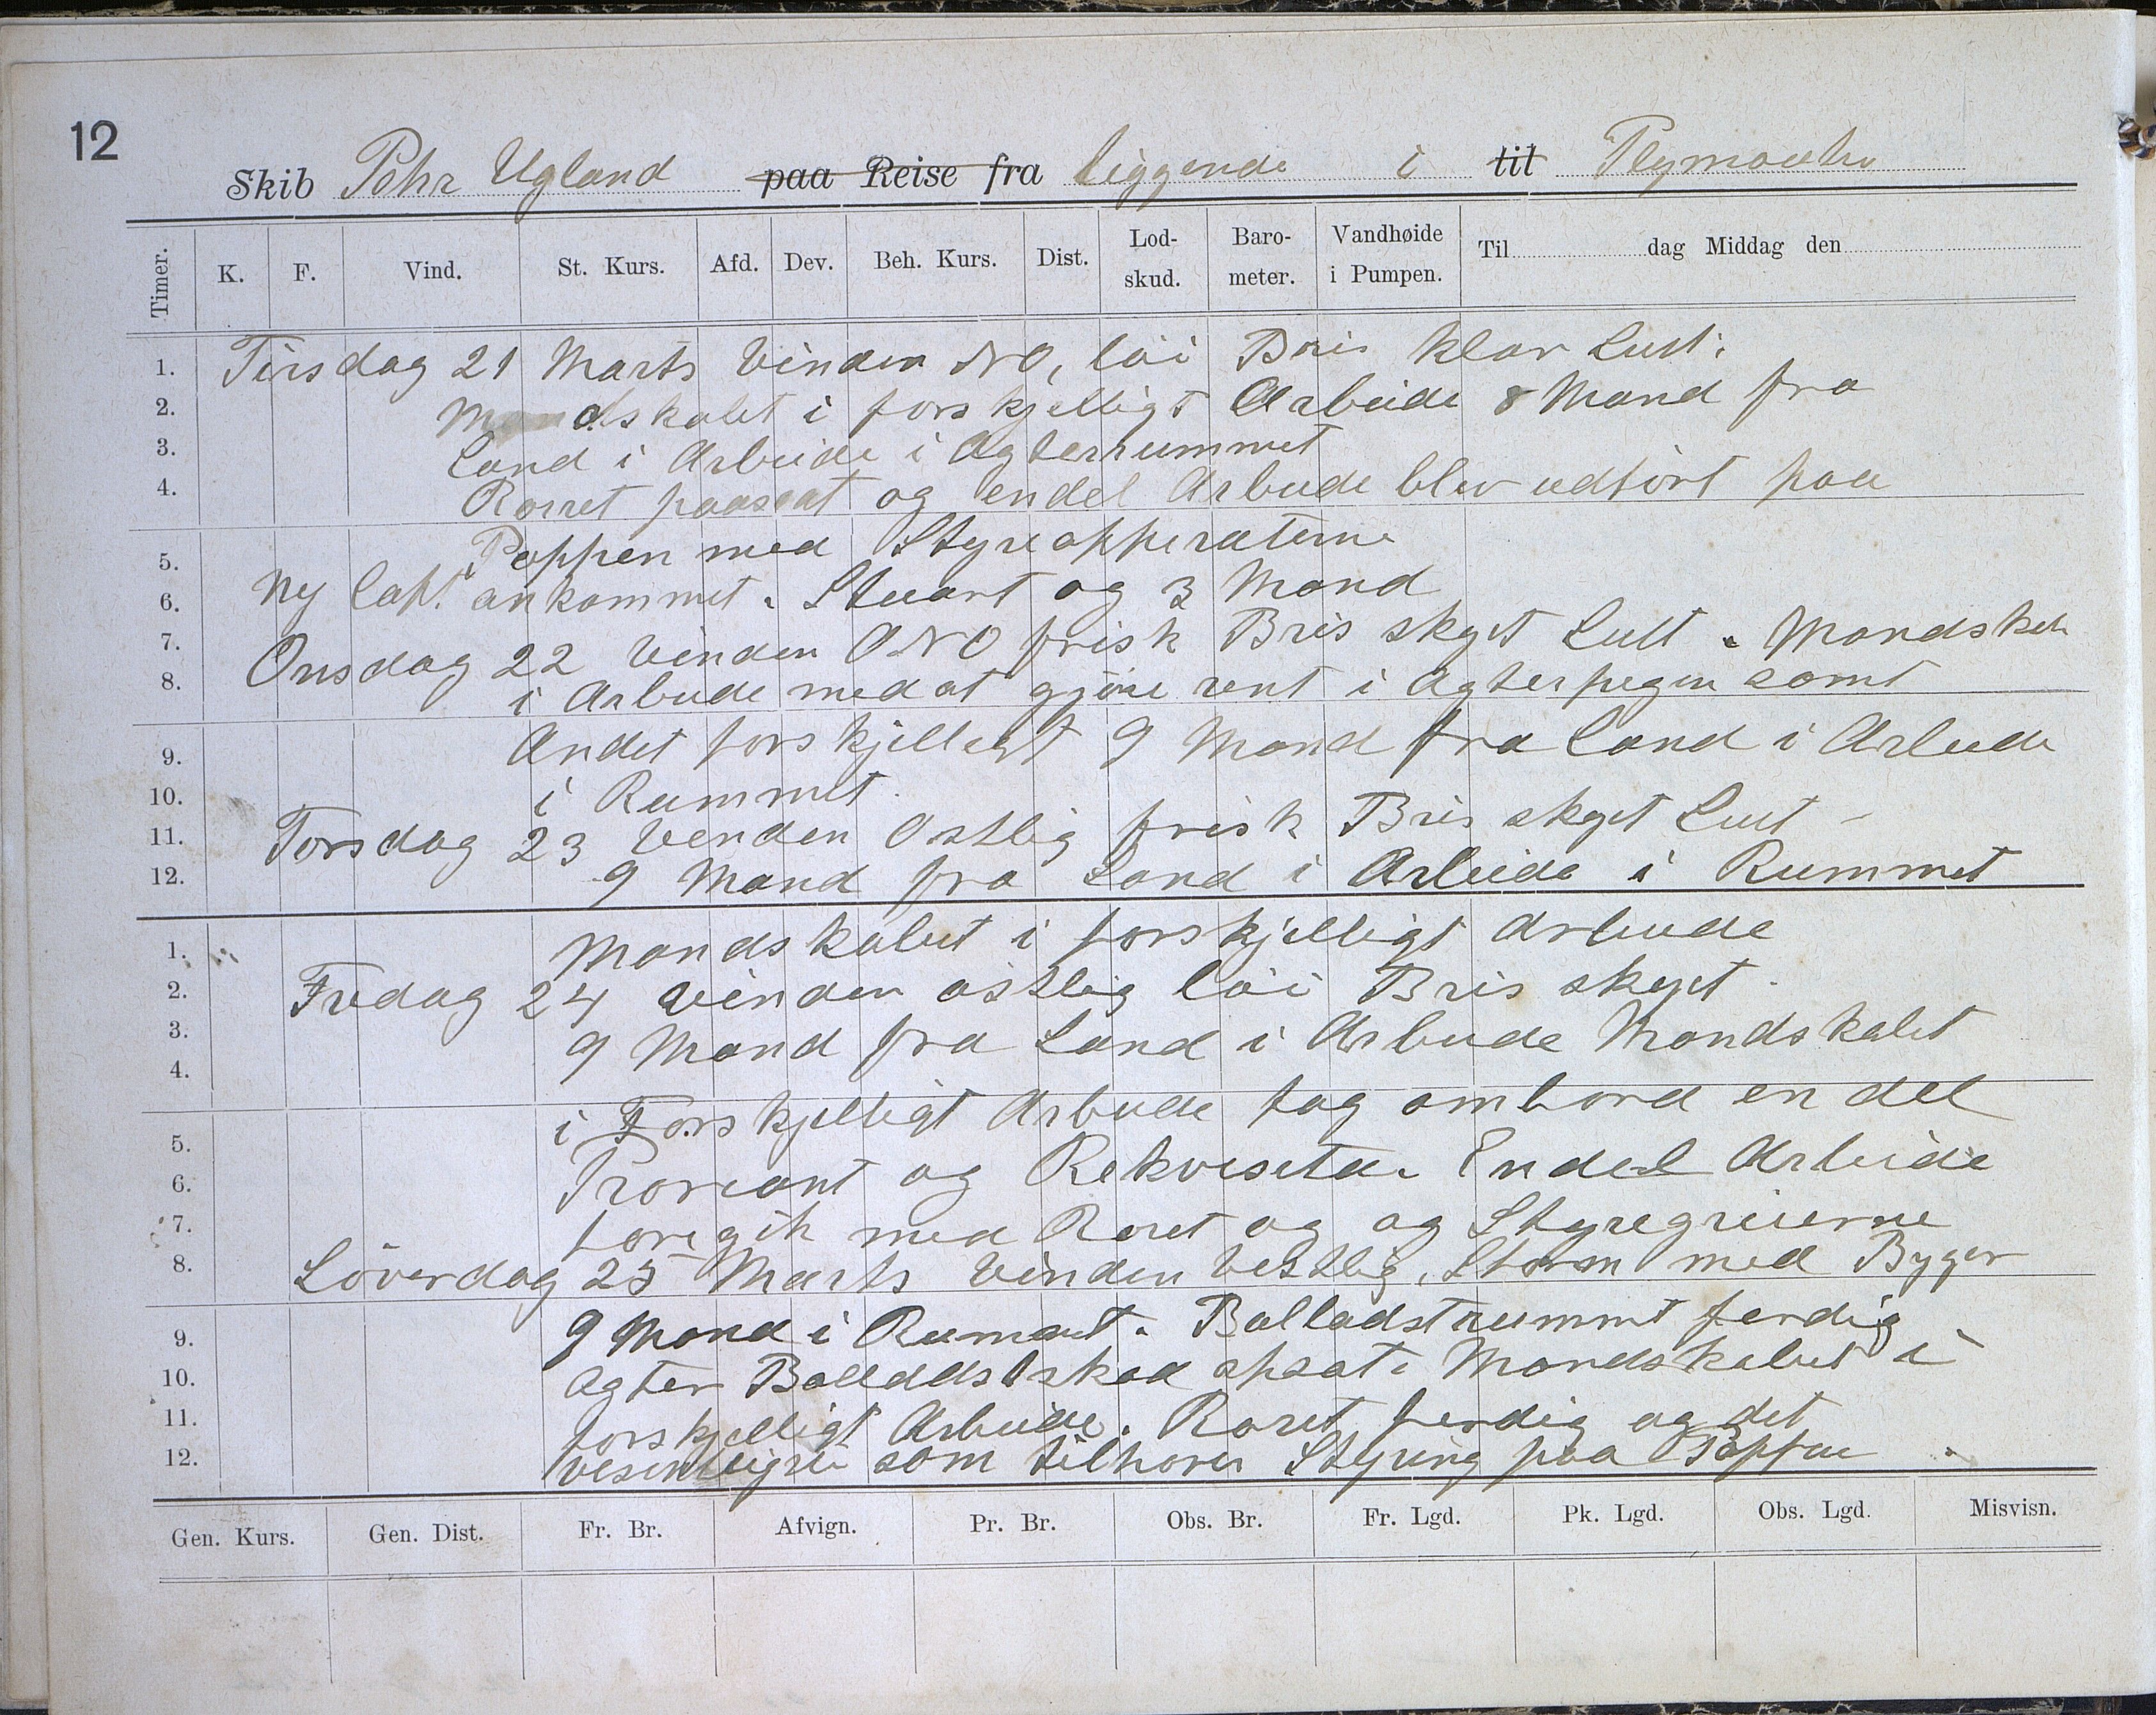 12
Skib Pehr Ugland paa Reise fra liggende i til Plymouth
Timer. K. F. Vind. St. Kurs. Afd. Dev. Beh. Kurs. Dist. Lod-skud. Baro-meter. Vandhøide i Pumpen. Til dag Middag den
1. Tirsdag 21 Marts Vinden NO, löi Bris klar Luft.
2. Mandskabet i forskjelligt Arbeide 8 Mand fra
3. Land i Arbeide i Agterrummet
4. Roret paasat og endel Arbeide blev udfört paa
5. Poppen med Styreapperaterne
6. Ny Capt. ankommet. Stuart og 3 Mand
7. Onsdag 22 Vinden ONO frisk Bris skyet Luft. Mandskab
8. i Arbeide med at gjöre rent i Agterpigen samt
9. Andet forskjelligt 9 Mand fra Land i Arbeide
10. i Rummet.
11. Torsdag 23 Vinden Ostlig frisk Bris skyet Luft -
12. 9 Mand fra Land i Arbeide i Rummet
1. Mandskabet i forskjelligt Arbeide
2. Fredag 24 Vinden östlig löi Bris skyet.
3. 9 Mand fra Land i Arbeide Mandskabet
4.
i Forskjelligt Arbeide tag ombord en del
5.
6. Proviant og Rekvisita. Endel Arbeide
7. foregik med Roret og og Styregreierne
8. Löverdag 25 Marts Vinden Vestlig, Storm med Byger
9. 9 Mand i Rummet. Balladstrummet ferdig
10. agter Balladstskod opsat. Mandskabet i
11. forskjelligt Arbeide. Roret ferdig og det
12. vesentligste som tilhörer Styring paa Poppen.
Gen. Kurs. Gen. Dist. Fr. Br. Afvign. Pr. Br. Obs. Br. Fr. Lgd. Pk. Lgd. Obs. Lgd. Misvisn.